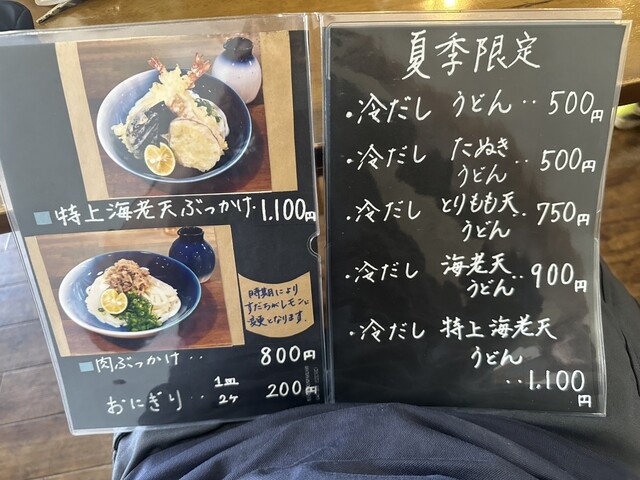 特上海老天ぶっかけ・1,100円
時期により
すだちがレモンに
変更となります。
肉ぶっかけ‥ 800円
おにぎり‥ 1皿 2ケ 200円
夏季限定
・冷だし うどん‥ 500円
・冷だし たぬき
うどん‥ 500円
・冷だし とりもも天
うどん‥ 750円
・冷だし 海老天
うどん‥ 900円
・冷だし 特上海老天
うどん
‥1,100円